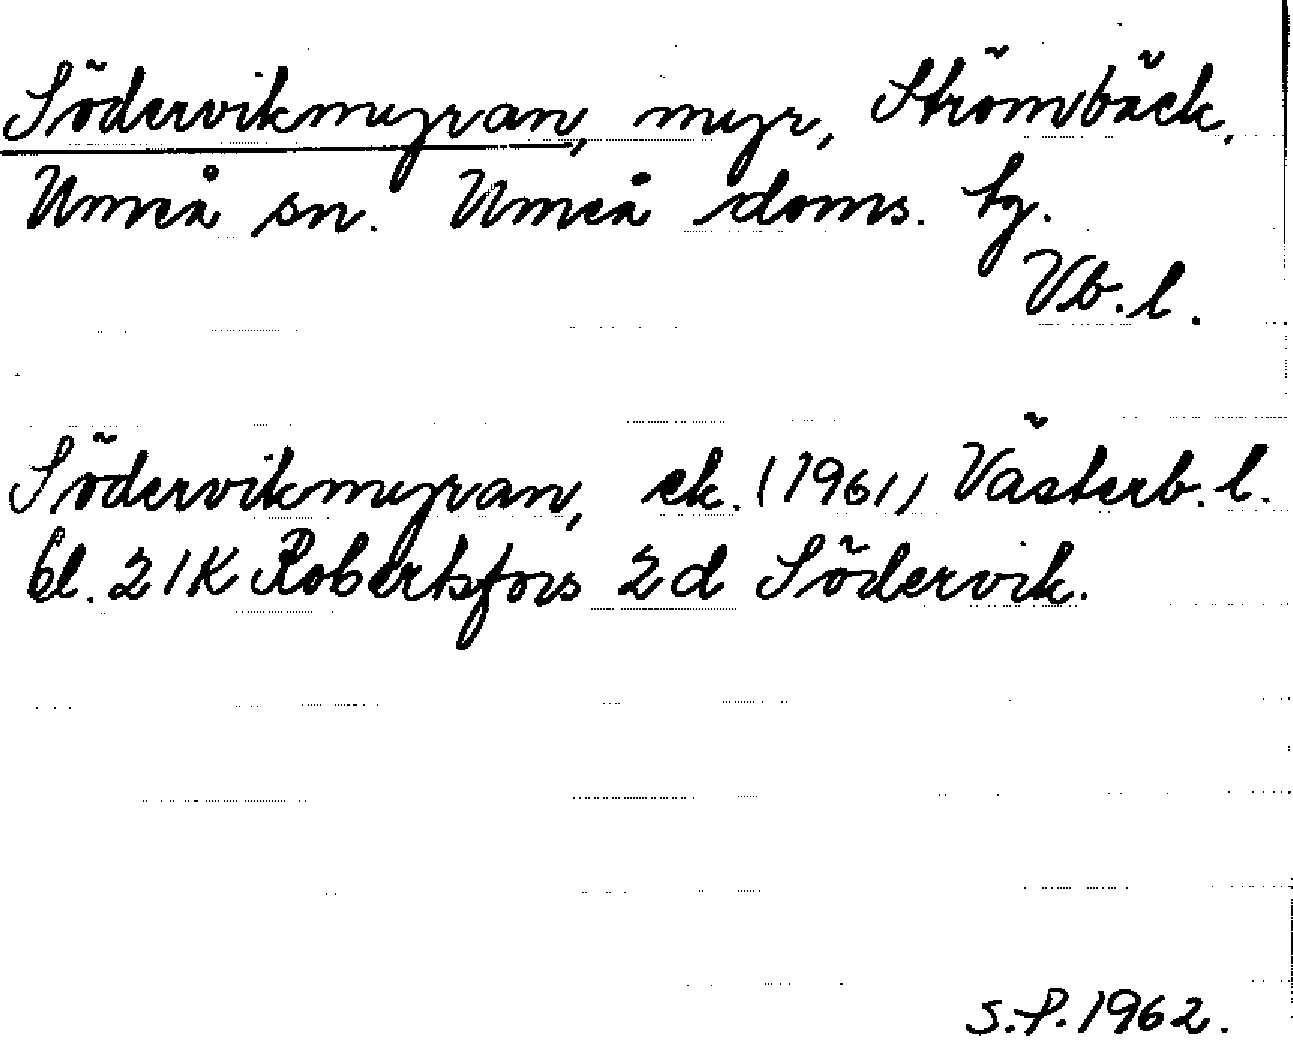 Södervikmyran, myr, Strömbäck,
Umeå sn. Umeå doms. tg.
Vb. l.
Södervikmyran, ek. (1961) Västerb. l.
bl. 21K Robertsfors 2d Södervik.
S.P. 1962.